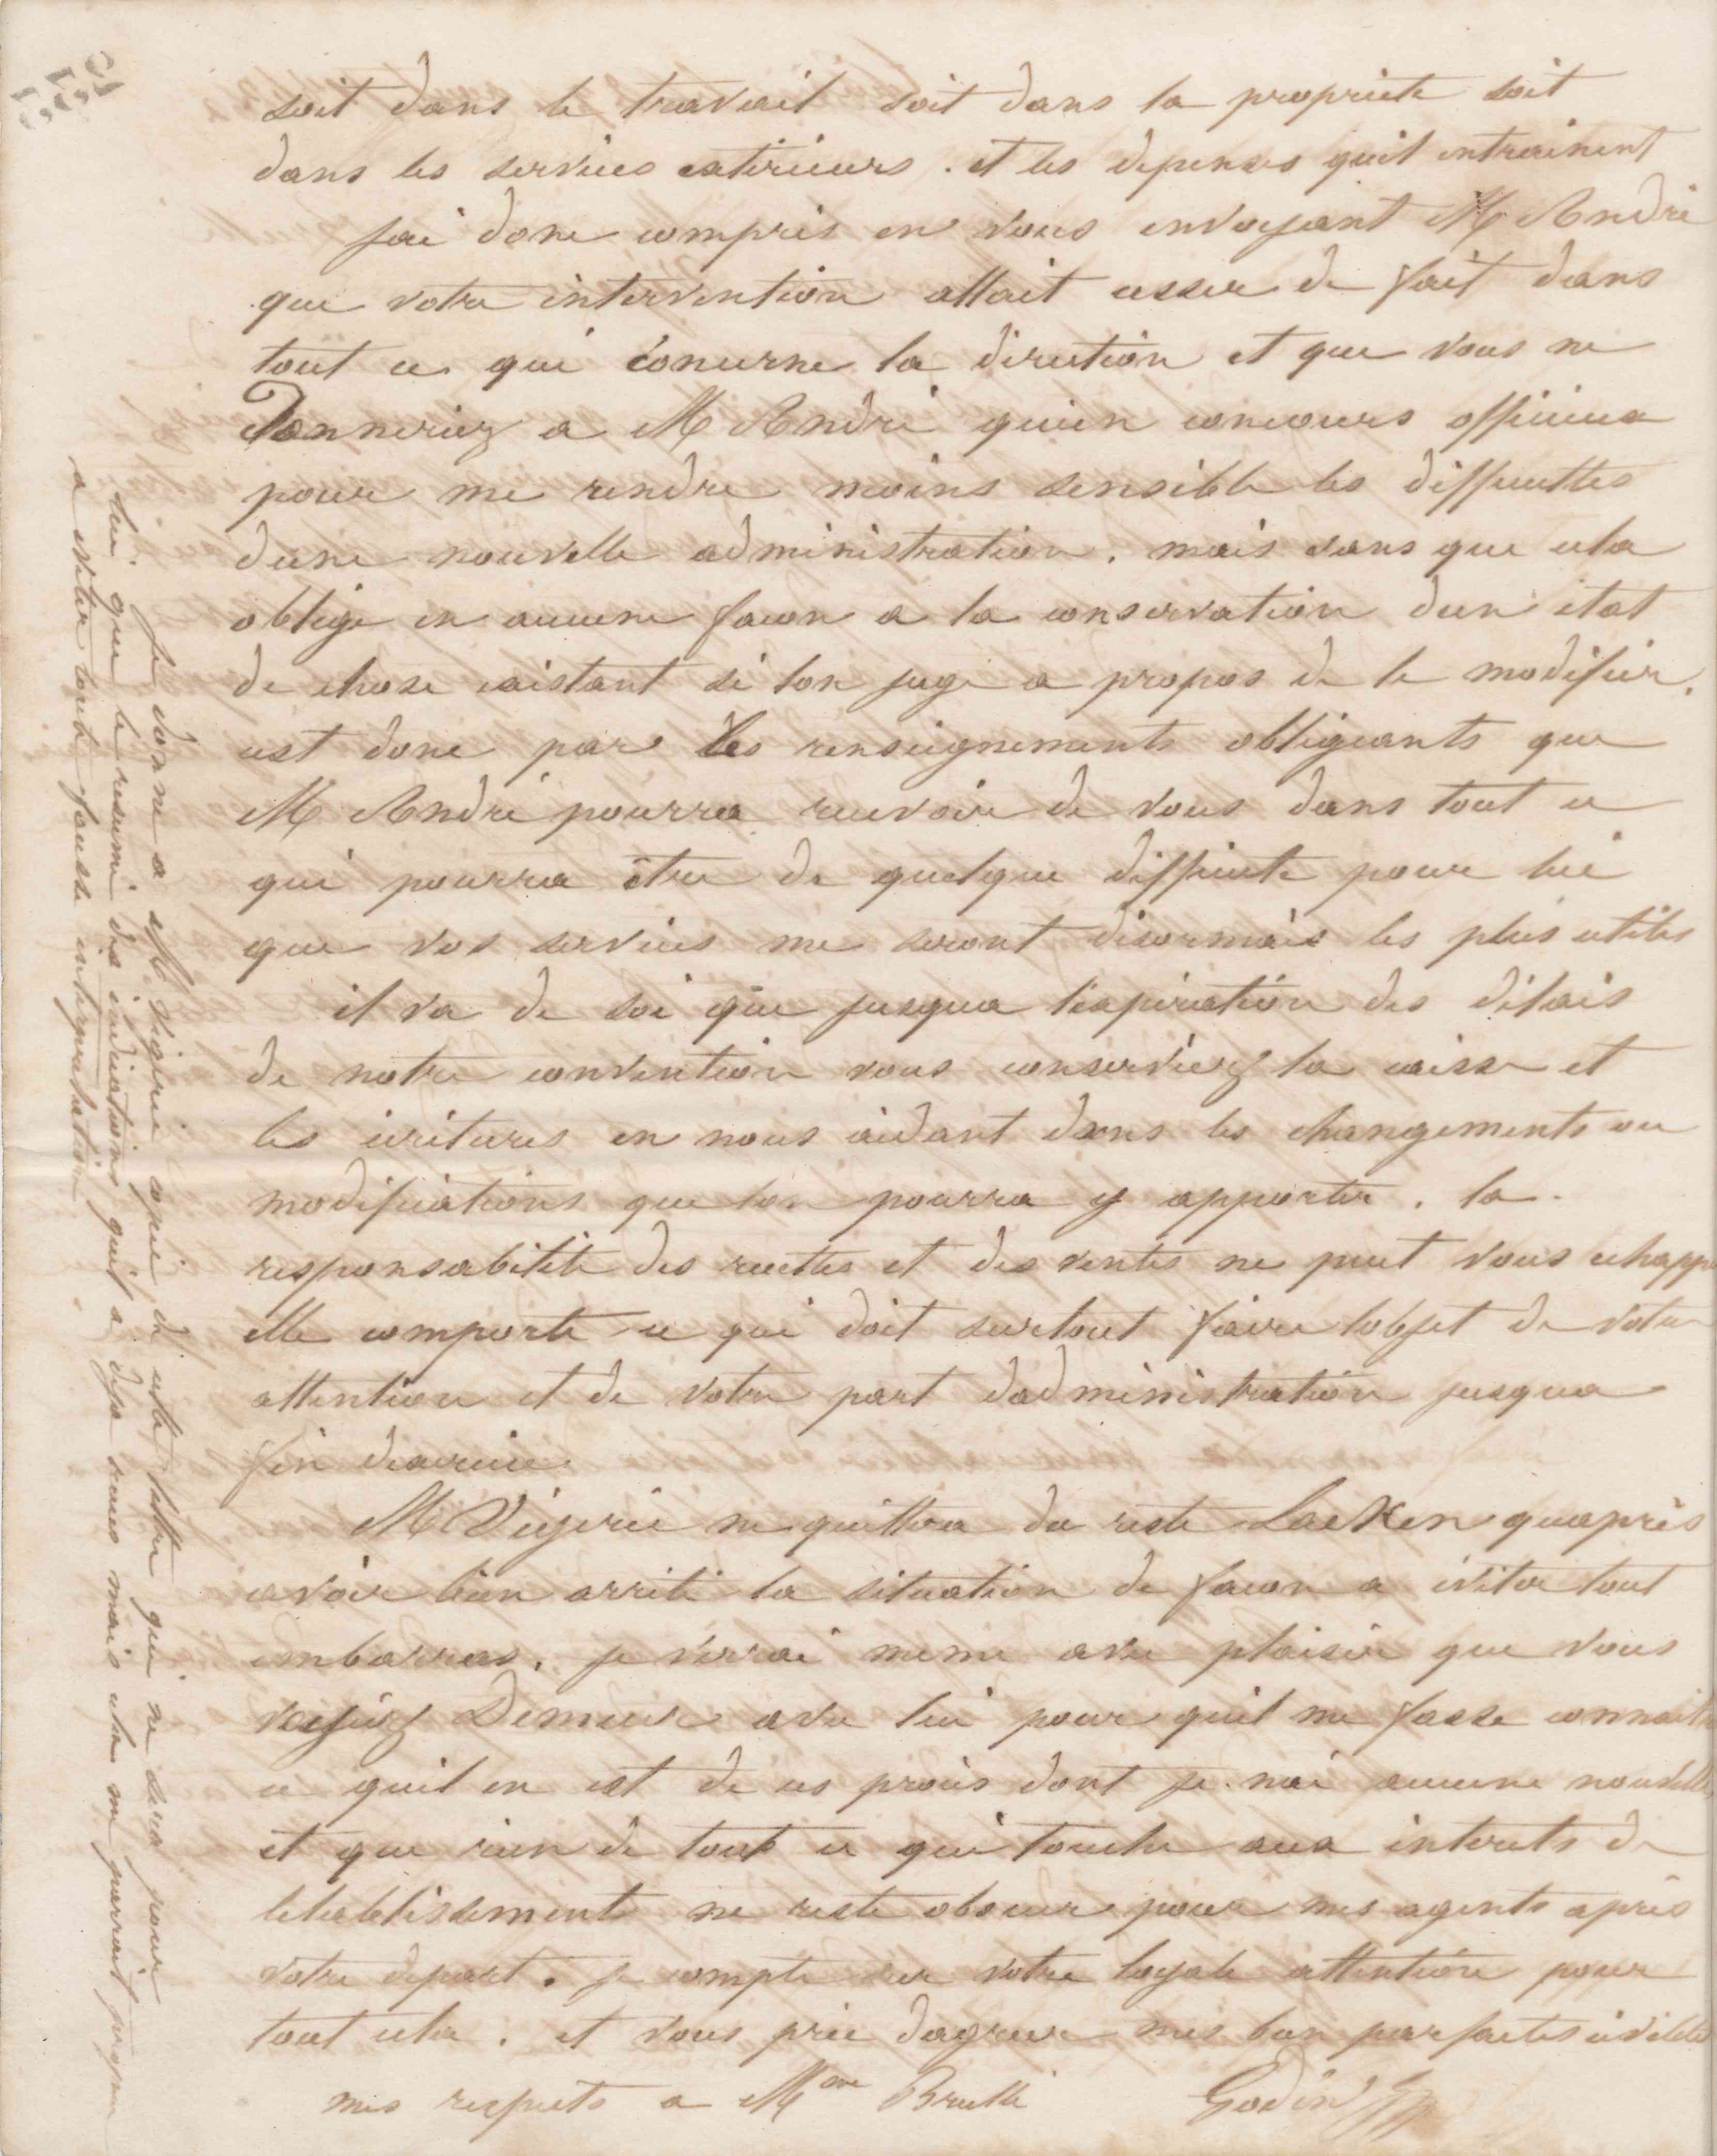 soit dans le travail soit dans la propriete soit
dans les services extérieurs . et les depenses quil entrainent
jai donc compris en vous envoyant M André
que votre intervention allait cesser de fait dans
tout ce qui concerne la direction et que vous ne
donneriez a M André quun concours officieux
pour me rendre moins sensible les difficultes
dune nouvelle administration . mais sans que cela
oblige en aucune facon a la conservation dun état
de chose existant si lon juge a propos de le modifier .
cest donc par les renseignements obligeants que
M André pourra recevoir de vous dans tout ce
qui pourra être de quelque difficulte pour lui
que vos services me seront désormais les plus utiles
il va de soi que jusqua lexpiration des délais
de notre convention vous conserviez la caisse et
les écritures en nous aidant dans les changements ou
modifications que lon pourra y apporter . la
responsabilité des recettes et des ventes ne peut vous echapp
elle comporte ce qui doit surtout faire lobjet de votre
attention et de votre part dadministration jusqua
fin dexercice
M Vigerie ne quittera du reste Laeken quaprès
avoir bien arrêté la situation de facon a éviter tout
embarras . je verrai meme avec plaisir que vous
voyiez Demeur avec lui pour quil me fasse connaitre
ce quil en est de ces procès dont je nai aucune nouvelle
et que rien de tout ce qui touche aux interets de
letablissement ne reste obscur pour mes agents après
votre depart . je compte sur votre loyale attention pour
tout cela . et vous prie dagreer mes bien parfaites civilités
mes respects a Mme Brullé Godin
je donne a M Vigerie copie de cette lettre qui ne sera pour
lui que le resumé des indications quil a deja recues mais cela me parrait propre
a eviter toute fausse interpretation